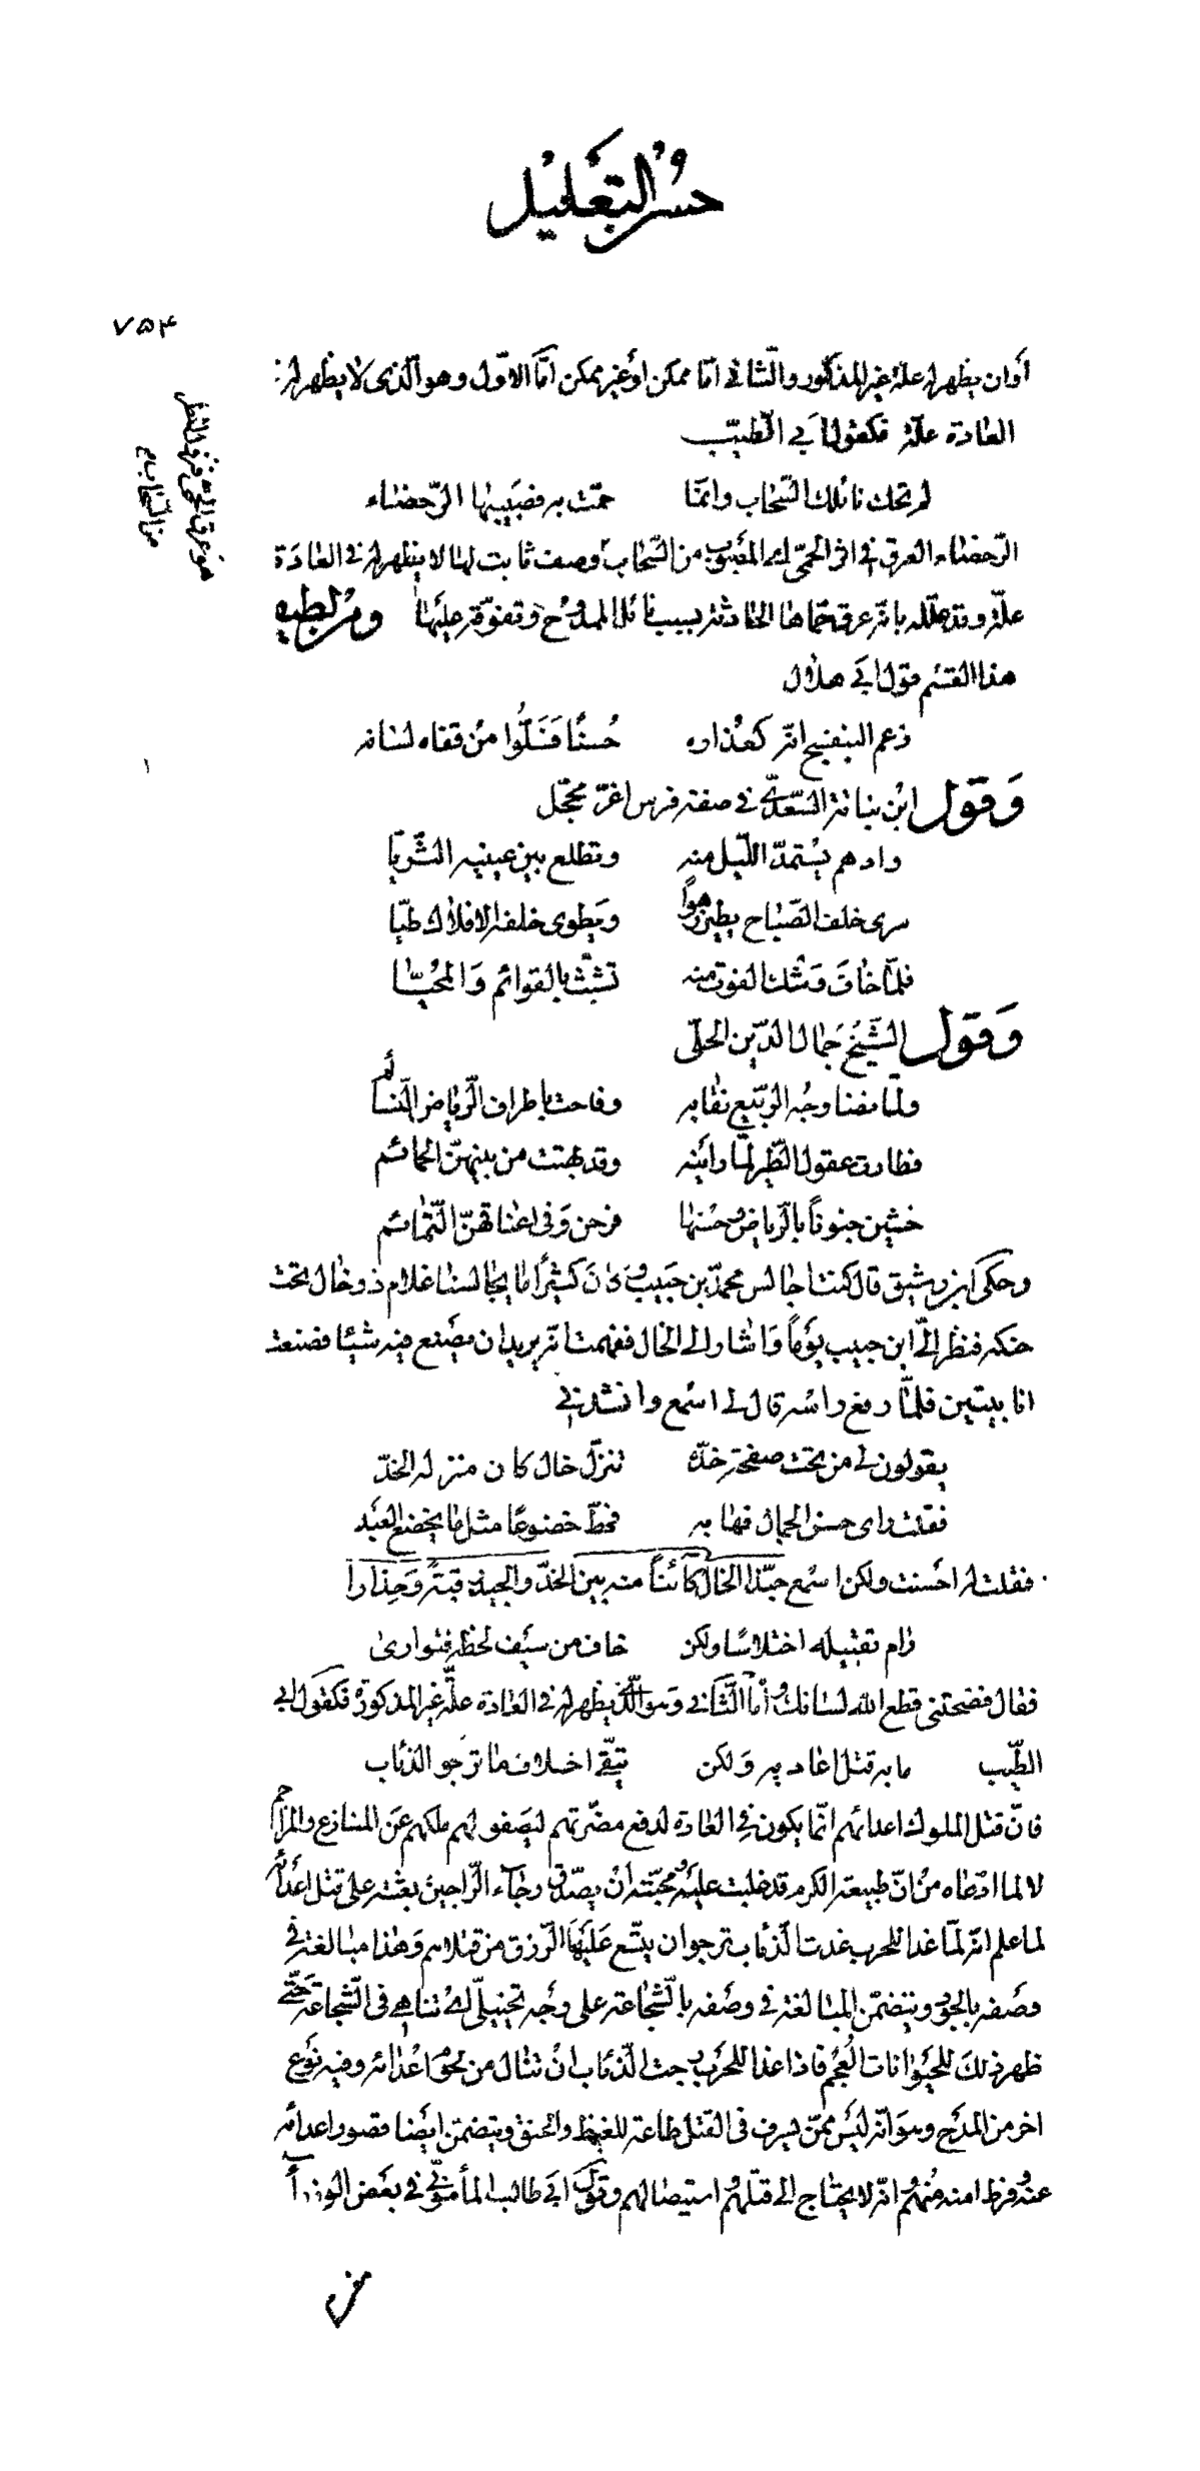 حسن التعليل
۷۵۴
أو ان يظهر له علة غير المذكور والثاني امّا ممكن او غير ممكن امّا الاوّل وهو الّذى لا يظهر له في
العادة علّة فكقول ابي الطّيّب
لم تحك نائلك السّحاب وانّما حمّت به فصبيبها الرّحضاء
الرّحضاء العرق في اثر الحمّى اى المصبوب من السّحاب وصف ثابت لها لا يظهر له في العادة
علّة وقد علّله بانّه عرق حمّاها الحادثة بسبب نائل الممدوح وتفوّقه عليها ومن لطيف
هذا القسم قول ابي هلال
زعم البنفسج انّه كعذاره حُسنًا فَسَلُّوا من قفاه لسانه
وَقول ابن نباتة السّعدىّ في صفة فرس اغرّ محجّل
وادهم يستمدّ اللّيل منه وتطلع بين عينيه الثّريّا
سرى خلف الصّباح يطير زهوًا ويطوى خلفه الافلاك طيّا
فلمّا خاف وَشك الفوت منه تشبّث بالقوائم وَالمُحيّا
وَقول الشّيخ جمال الدّين الحلّى
ولمّا نضا وجه الرّبيع نقابه وفاحت باطراف الرّياض النّسائم
فطارت عقول الطّير لمّا راينه وقد بهتت من بينهنّ الحمائم
خشين جنونًا بالرّياض وحسنها فرحن وَفى اعناقهنّ التّمائم
وحكى ابن رشيق قال كنت اجالس محمّد بن حَبيب وَكانَ كثيرًا ما يجالسنا غلام ذو خال تحت
حنكه فنظر الىّ ابن حبيب يومًا وَاشار الى الخال ففهمت انّه يريد ان يصنع فيه شيئا فصنعت
انا بيتين فلمّا رفع راسه قال لى اسمع وانشدنى
يقولون لى من تحت صفحة خدّه تنزّل خال كان منزله الخدّ
فقلت راى حسن الجمال فهابه فحطّ خضوعًا مثل ما يخضع العبد
فقلت له احسنت ولكن اسمع حبّذا الخال كائنًا منه بين الخدّ والجيد رقبةً وَحِذارا
رام تقبيله اختلاسًا ولكن خاف من سيف لحظه فتوارى
فقال فضحتنى قطع الله لسانك وأمّا الثّانى وَهو الّذى يظهر له في العادة علّة غير المذكورة فكقول ابي
الطّيب ما به قتل اعاديه وَلكن يتّقى اخلاف ما ترجو الذئاب
فانّ قتل الملوك اعدائهم انّما يكون في العادة لدفع مضرّتهم ليصفو لهم ملكهم عَن المنازع والمزاحم
لا لما ادّعاه من انّ طبيعة الكرم قد غلبت عليه ومحبّته ان يصدق رجاء الرّاجين بعثته على قتل اعدائه
لما علم انّه لمّا غدا للحرب غدت الذئاب ترجو ان يتّسع عليها الرّزق من قتلاهم وَهذا مبالغة في
وصفه بالجود ويتضمّن المبالغة في وصفه بالشّجاعة على وجه تخييلىّ اى تناهى فى الشّجاعة حَتّى
ظهر ذلك للحيوانات العُجم فاذا غدا للحرب رجت الذئاب ان تنال من لحوم اعدائه وفيه نوع
اخر من المدح وهوَ انّه ليس ممّن يسرف فى القتل طاعة للغيظ والحنق ويتضمّن ايضا قصور اعدائه
عنه وفرط امنه منهم وانّه لا يحتاج الى قتلهم واستيصالهم وقول ابي طالب المأمونىّ في بعض الوزراء
هو عرق الحمى
من السّحاب
۱